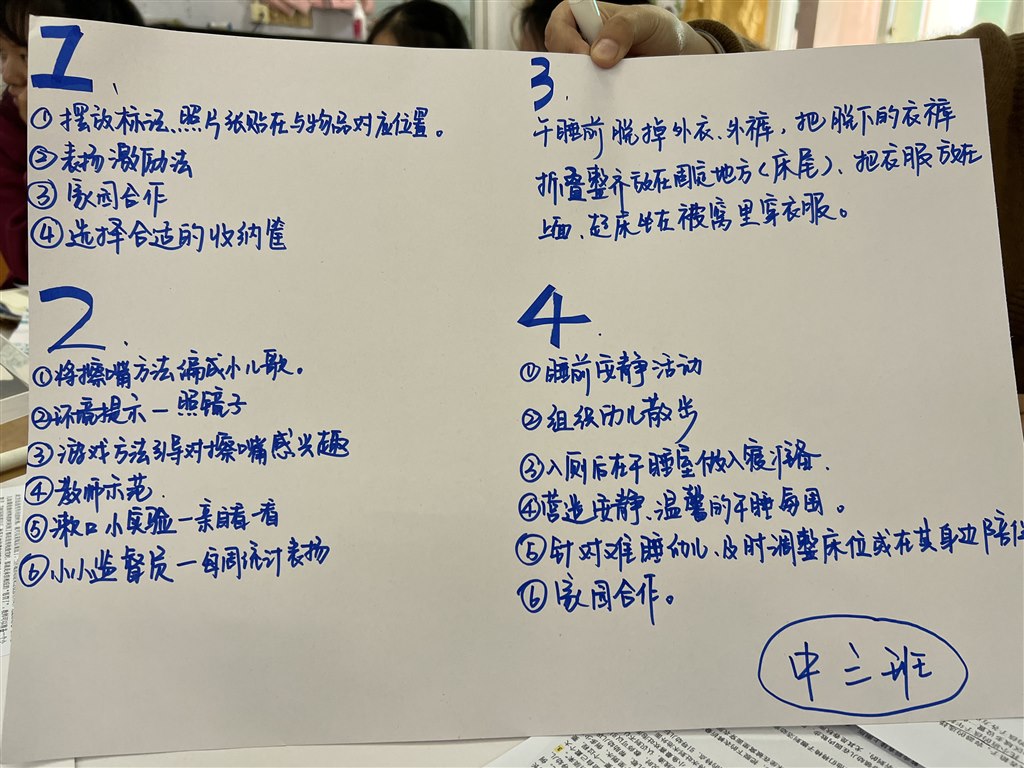 1.
①摆放标法、照片纸贴在与物品对应位置。
②表扬激励法
③家园合作
④选择合适的收纳筐
2.
①将擦嘴方法编成小儿歌。
②环境提示一照镜子
③游戏方法引导对擦嘴感兴趣
④教师示范.
⑤漱口小实验一亲自看一看
⑥小小监督员一每周统计表扬
3.
午睡前脱掉外衣、外裤，把脱下的衣裤
折叠整齐放在固定地方(床尾)、把衣服放在
上面、起床坐在被窝里穿衣服。
4.
①睡前安静活动
②组织幼儿散步
③入厕后在午睡室做入寝准备.
④营造安静、温馨的午睡氛围。
⑤针对难睡幼儿、及时调整床位或在其身边陪
⑥家园合作。
中三班